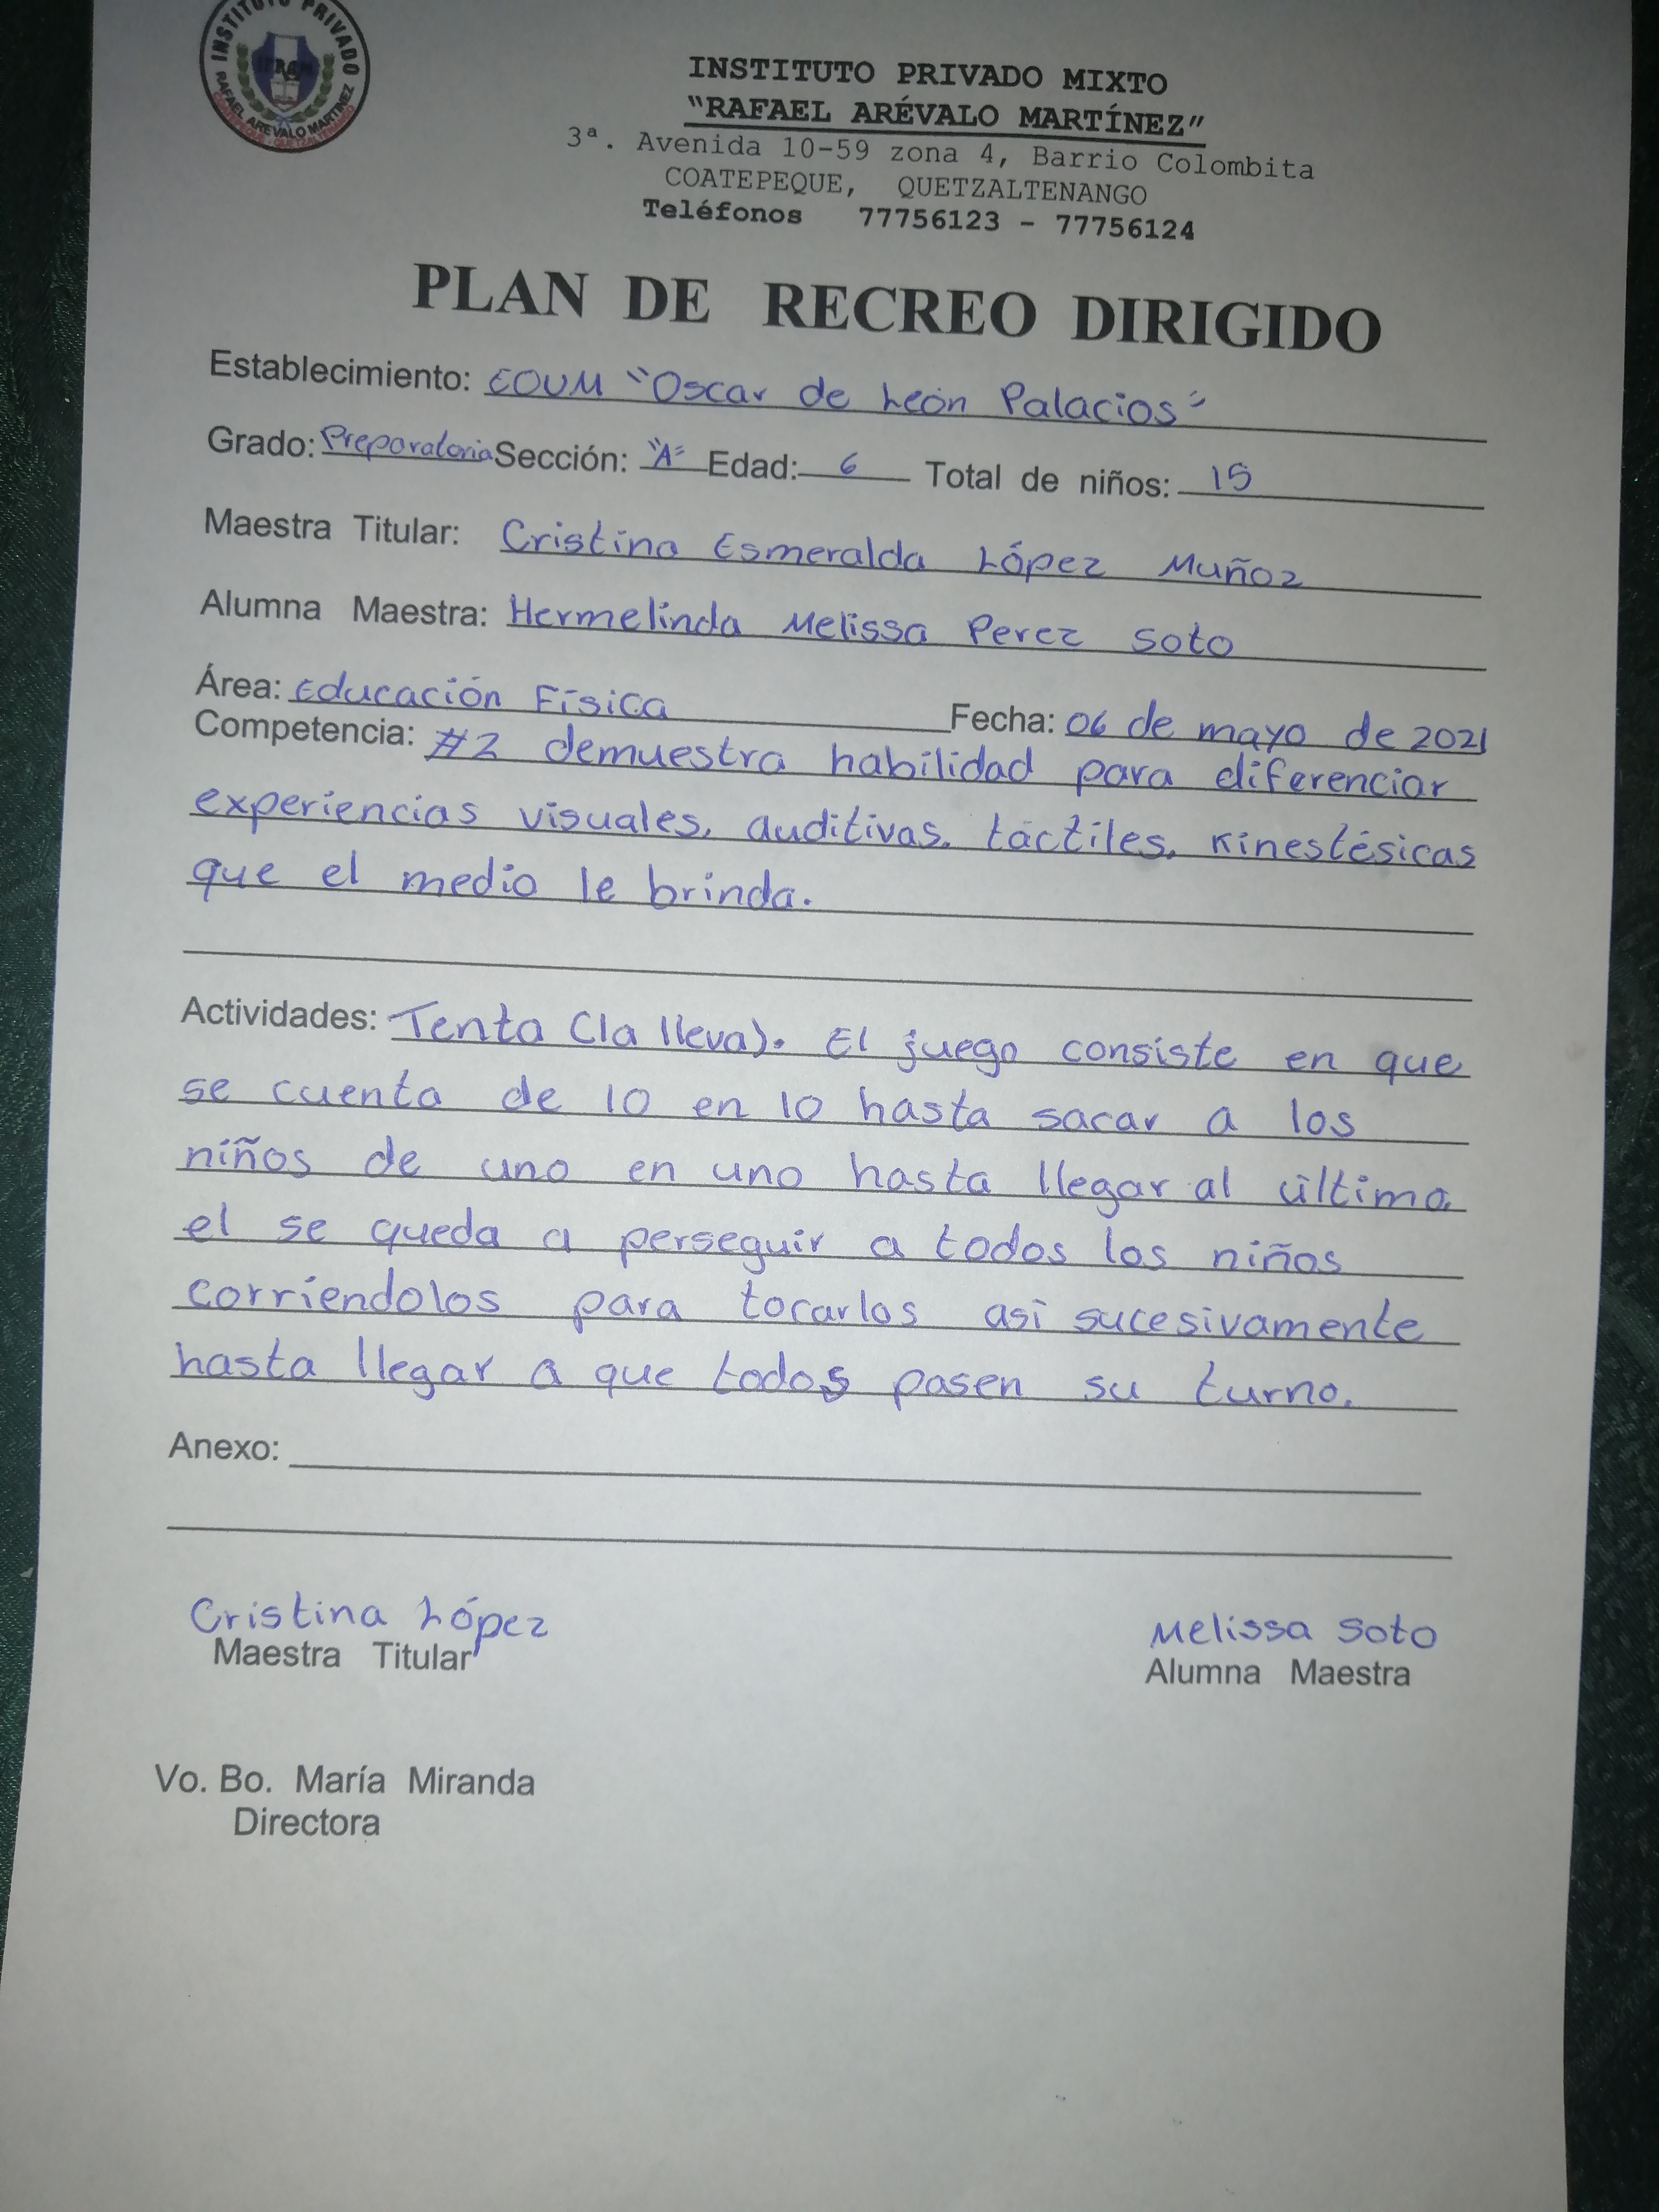 INSTITUTO PRIVADO
RAFAEL AREVALO MARTINEZ
INSTITUTO PRIVADO MIXTO
"RAFAEL ARÉVALO MARTÍNEZ"
3ª. Avenida 10-59 zona 4, Barrio Colombita
COATEPEQUE, QUETZALTENANGO
Teléfonos 77756123 - 77756124
PLAN DE RECREO DIRIGIDO
Establecimiento: EOUM "Oscar de León Palacios"
Grado: Preparatoria Sección: "A" Edad: 6 Total de niños: 15
Maestra Titular: Cristina Esmeralda López Muñoz
Alumna Maestra: Hermelinda Melissa Perez Soto
Área: Educación Física Fecha: 06 de mayo de 2021
Competencia: #2 demuestra habilidad para diferenciar
experiencias visuales, auditivas, táctiles, kinestésicas
que el medio le brinda.
Actividades: Tenta (la lleva). El juego consiste en que
se cuenta de 10 en 10 hasta sacar a los
niños de uno en uno hasta llegar al último,
el se queda a perseguir a todos los niños
corriendolos para tocarlos asi sucesivamente
hasta llegar a que todos pasen su turno.
Anexo:
Cristina López
Maestra Titular
Melissa Soto
Alumna Maestra
Vo. Bo. María Miranda
Directora